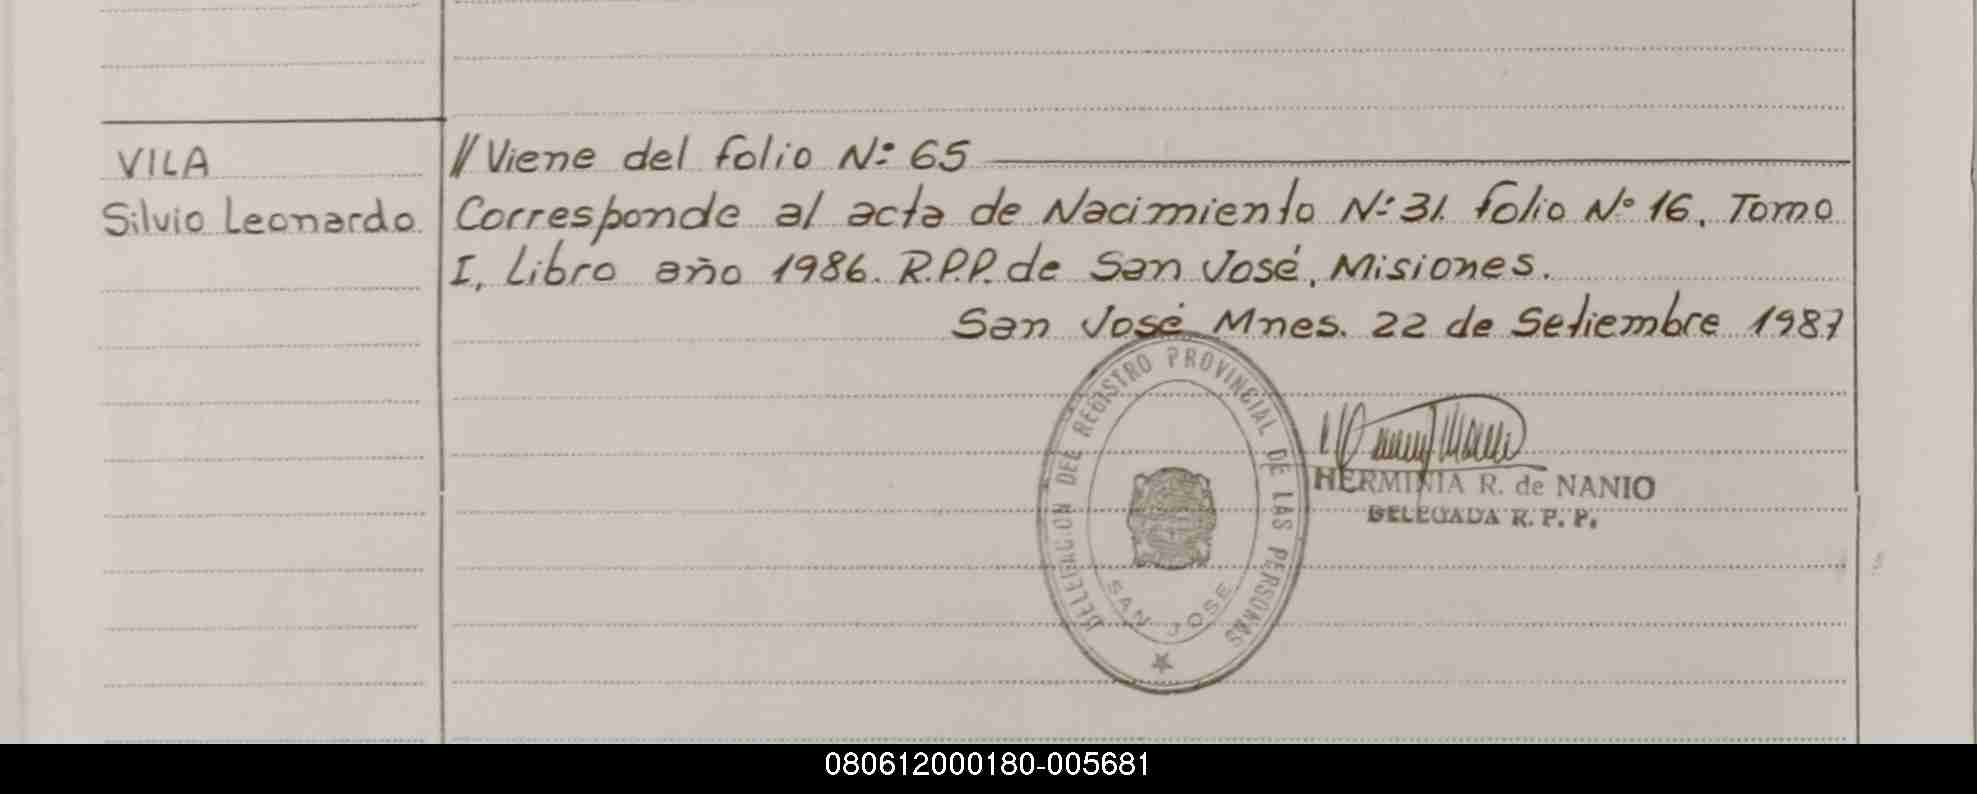 VILA
Silvio Leonardo
// Viene del folio Nº 65
Corresponde al acta de Nacimiento Nº 31. folio Nº 16. Tomo
I, Libro año 1986. R.P.P. de San José, Misiones.
San José Mnes. 22 de Setiembre 1987
DELEGACION DEL REGISTRO PROVINCIAL DE LAS PERSONAS
SAN JOSE
HERMINIA R. de NANIO
DELEGADA R. P. P.
080612000180-005681